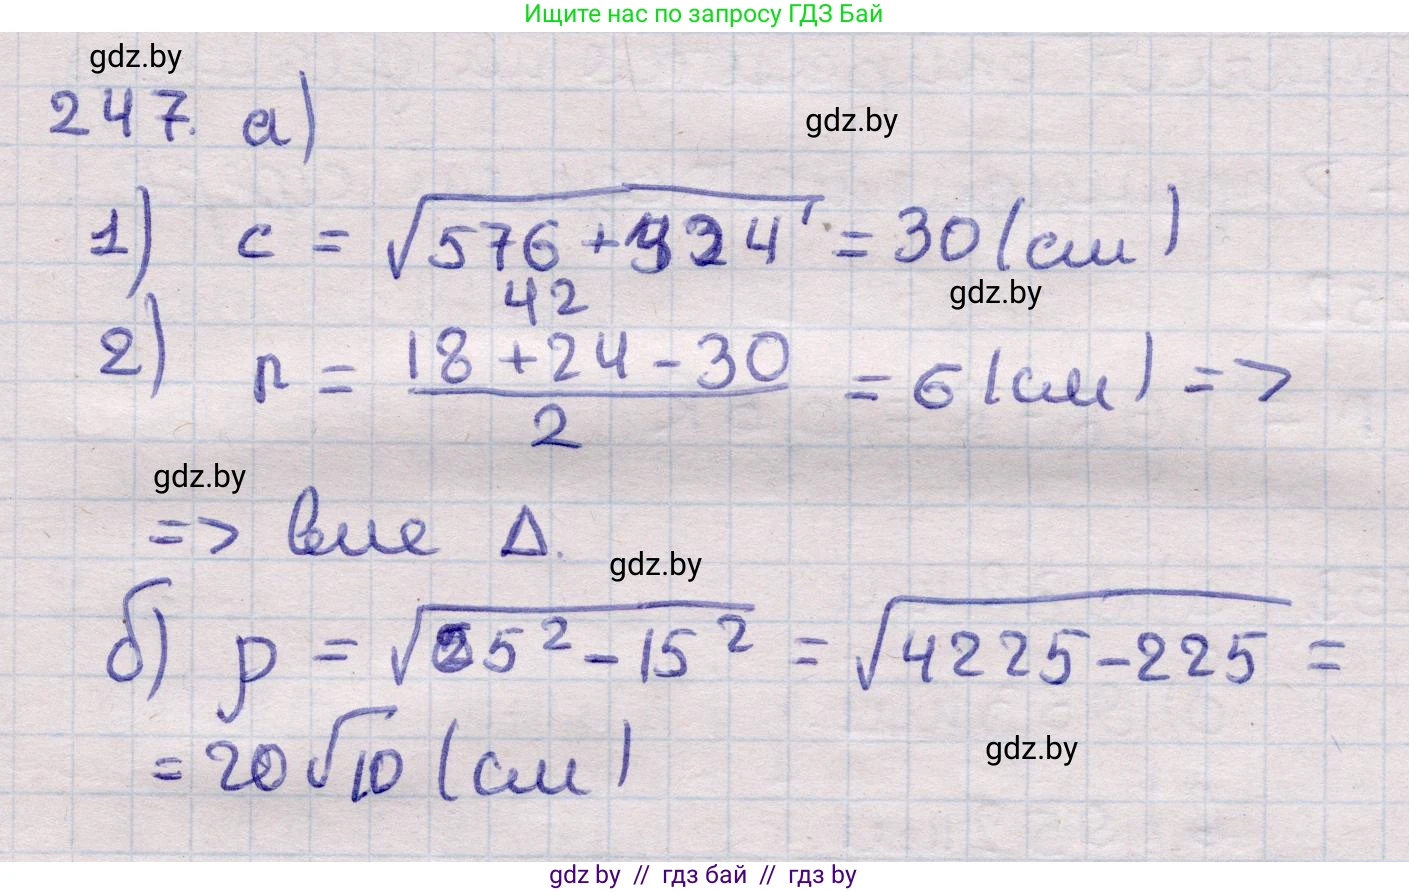 Ищите нас по запросу ГДЗ Бай
gdz.by
247. а)
gdz.by
1) c = √576 + 324 = 30 (см)
gdz.by
42
2) r = 18 + 24 - 30 / 2 = 6 (см) =>
gdz.by
=> вне Δ.
gdz.by
б) p = √65² - 15² = √4225 - 225 =
= 20√10 (см)
gdz.by
gdz by // гдз бай // гдз by